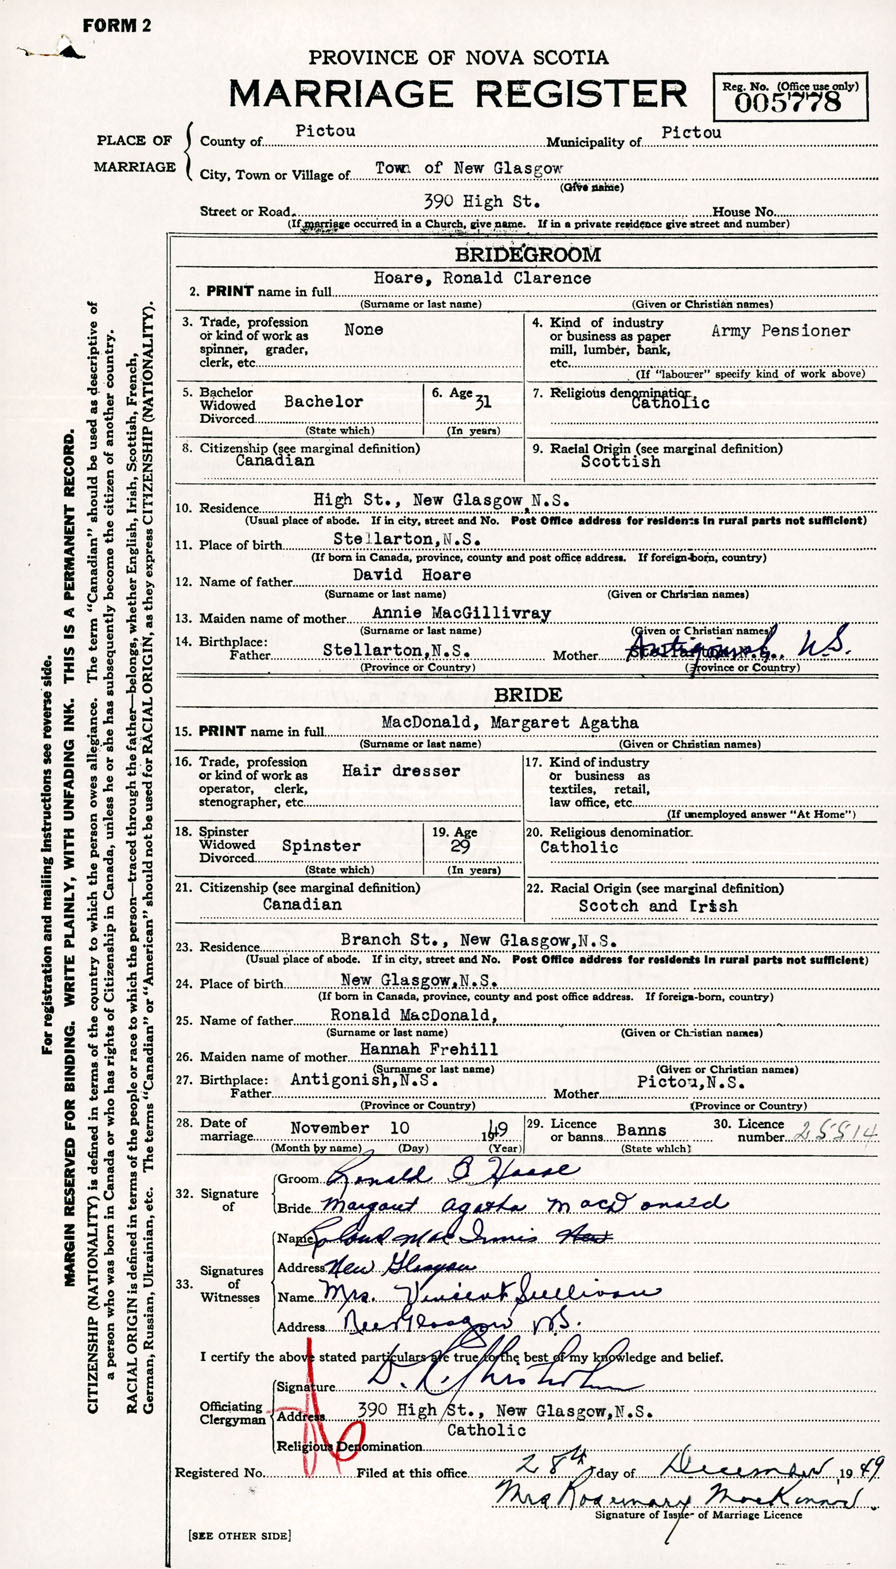 FORM 2
PROVINCE OF NOVA SCOTIA
MARRIAGE REGISTER
Reg. No. (Office use only)
005778
PLACE OF MARRIAGE
County of Pictou Municipality of Pictou
City, Town or Village of Town of New Glasgow
(Give name)
Street or Road 390 High St. House No.
(If marriage occurred in a Church, give name. If in a private residence give street and number)
BRIDEGROOM
2. PRINT name in full Hoare, Ronald Clarence
(Surname or last name) (Given or Christian names)
3. Trade, profession or kind of work as spinner, grader, clerk, etc. None
4. Kind of industry or business as paper mill, lumber, bank, etc. Army Pensioner
(If "labourer" specify kind of work above)
5. Bachelor Widowed Divorced Bachelor
(State which)
6. Age 31
(In years)
7. Religious denomination Catholic
8. Citizenship (see marginal definition) Canadian
9. Racial Origin (see marginal definition) Scottish
10. Residence High St., New Glasgow, N.S.
(Usual place of abode. If in city, street and No. Post Office address for residents in rural parts not sufficient)
11. Place of birth Stellarton, N.S.
(If born in Canada, province, county and post office address. If foreign-born, country)
12. Name of father David Hoare
(Surname or last name) (Given or Christian names)
13. Maiden name of mother Annie MacGillivray
(Surname or last name) (Given or Christian names)
14. Birthplace: Father Stellarton, N.S. Mother Antigonish, N.S.
(Province or Country) (Province or Country)
BRIDE
15. PRINT name in full MacDonald, Margaret Agatha
(Surname or last name) (Given or Christian names)
16. Trade, profession or kind of work as operator, clerk, stenographer, etc. Hair dresser
17. Kind of industry or business as textiles, retail, law office, etc.
(If unemployed answer "At Home")
18. Spinster Widowed Divorced Spinster
(State which)
19. Age 29
(In years)
20. Religious denomination Catholic
21. Citizenship (see marginal definition) Canadian
22. Racial Origin (see marginal definition) Scotch and Irish
23. Residence Branch St., New Glasgow, N.S.
(Usual place of abode. If in city, street and No. Post Office address for residents in rural parts not sufficient)
24. Place of birth New Glasgow, N.S.
(If born in Canada, province, county and post office address. If foreign-born, country)
25. Name of father Ronald MacDonald,
(Surname or last name) (Given or Christian names)
26. Maiden name of mother Hannah Frehill
(Surname or last name) (Given or Christian names)
27. Birthplace: Father Antigonish, N.S. Mother Pictou, N.S.
(Province or Country) (Province or Country)
28. Date of marriage November 10 1949
(Month by name) (Day) (Year)
29. Licence or banns Banns
(State which)
30. Licence number 25514
32. Signature of
Groom Ronald C Hoare
Bride Margaret Agatha MacDonald
33. Signatures of Witnesses
Name MacInnis
Address New Glasgow
Name Mrs. Vincent Sullivan
Address New Glasgow N.S.
I certify the above stated particulars are true to the best of my knowledge and belief.
Officiating Clergyman
Signature
Address 390 High St., New Glasgow, N.S.
Catholic
Religious Denomination
Registered No. Filed at this office 28th day of December, 1949
Mrs Rosemary MacKinnon
Signature of Issuer of Marriage Licence
[SEE OTHER SIDE]
For registration and mailing instructions see reverse side.
MARGIN RESERVED FOR BINDING. WRITE PLAINLY, WITH UNFADING INK. THIS IS A PERMANENT RECORD.
CITIZENSHIP (NATIONALITY) is defined in terms of the country to which the person owes allegiance. The term "Canadian" should be used as descriptive of
a person who was born in Canada or who has rights of Citizenship in Canada, unless he or she has subsequently become the citizen of another country.
RACIAL ORIGIN is defined in terms of the people or race to which the person—traced through the father—belongs, whether English, Irish, Scottish, French,
German, Russian, Ukrainian, etc. The terms "Canadian" or "American" should not be used for RACIAL ORIGIN, as they express CITIZENSHIP (NATIONALITY).